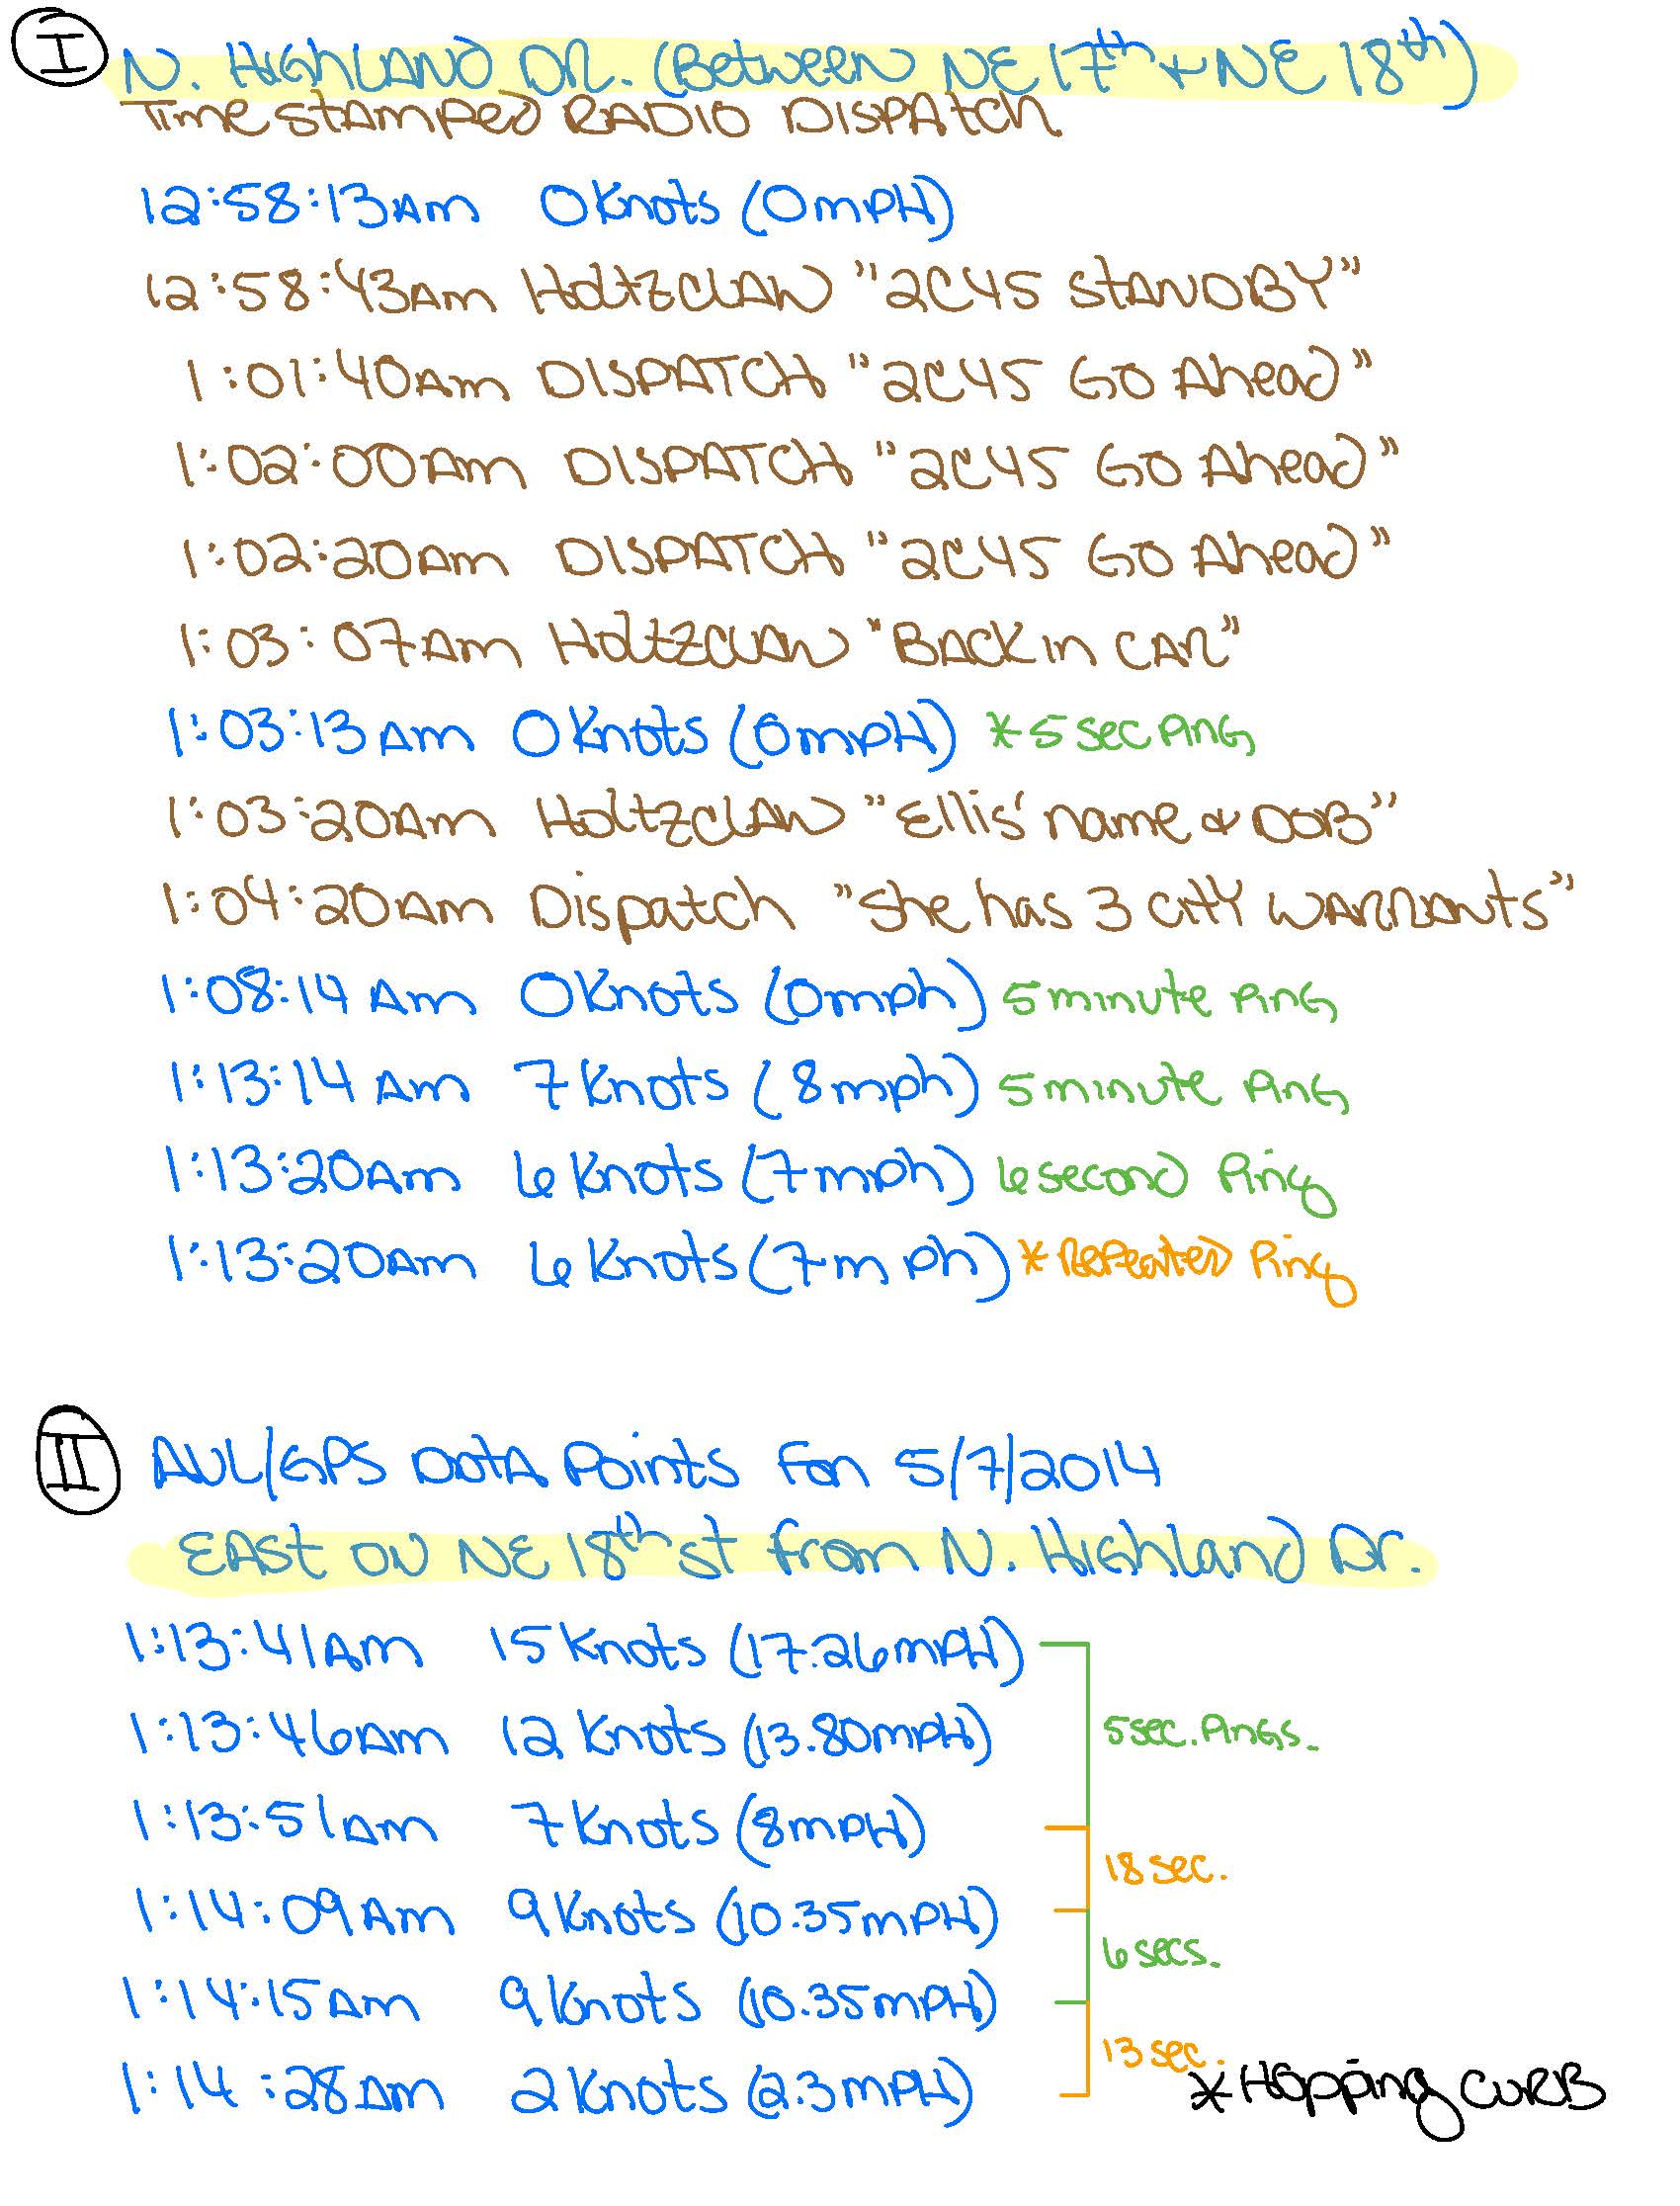 I N. Highland Dr. (Between NE 17th & NE 18th)
Time Stamped Radio Dispatch
12:58:13am 0 Knots (0mph)
12:58:43am Holtzclaw "2C45 Standby"
1:01:40am Dispatch "2C45 Go Ahead"
1:02:00am Dispatch "2C45 Go Ahead"
1:02:20am Dispatch "2C45 Go Ahead"
1:03:07am Holtzclaw "Back in car"
1:03:13am 0 Knots (0mph) *5 sec ping
1:03:20am Holtzclaw "Ellis' name & DOB"
1:04:20am Dispatch "She has 3 city warrants"
1:08:14am 0 Knots (0mph) 5 minute ping
1:13:14am 7 Knots (8mph) 5 minute ping
1:13:20am 6 Knots (7mph) 6 second Ping
1:13:20am 6 Knots (7mph) *Repeated Ping
II AVL/GPS Data Points for 5/7/2014
East on NE 18th st from N. Highland Dr.
1:13:41am 15 Knots (17.26mph)
1:13:46am 12 Knots (13.80mph) 5 sec. Pings.
1:13:51am 7 Knots (8mph)
18 sec.
1:14:09am 9 Knots (10.35mph)
6 secs.
1:14:15am 9 Knots (10.35mph)
13 sec.
1:14:28am 2 Knots (2.3mph) *Hopping curb